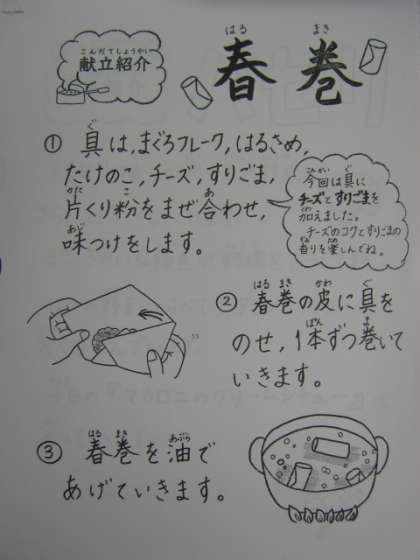 こんだてしょうかい
献立紹介
はる まき
春巻
① 具は、まぐろフレーク、はるさめ、
たけのこ、チーズ、すりごま、
片くり粉をまぜ合わせ、
味つけをします。
今回は具に
チーズとすりごまを
加えました。
チーズのコクとすりごまの
香りを楽しんでね。
② 春巻の皮に具を
のせ、1本ずつ巻いて
いきます。
③ 春巻を油で
あげていきます。